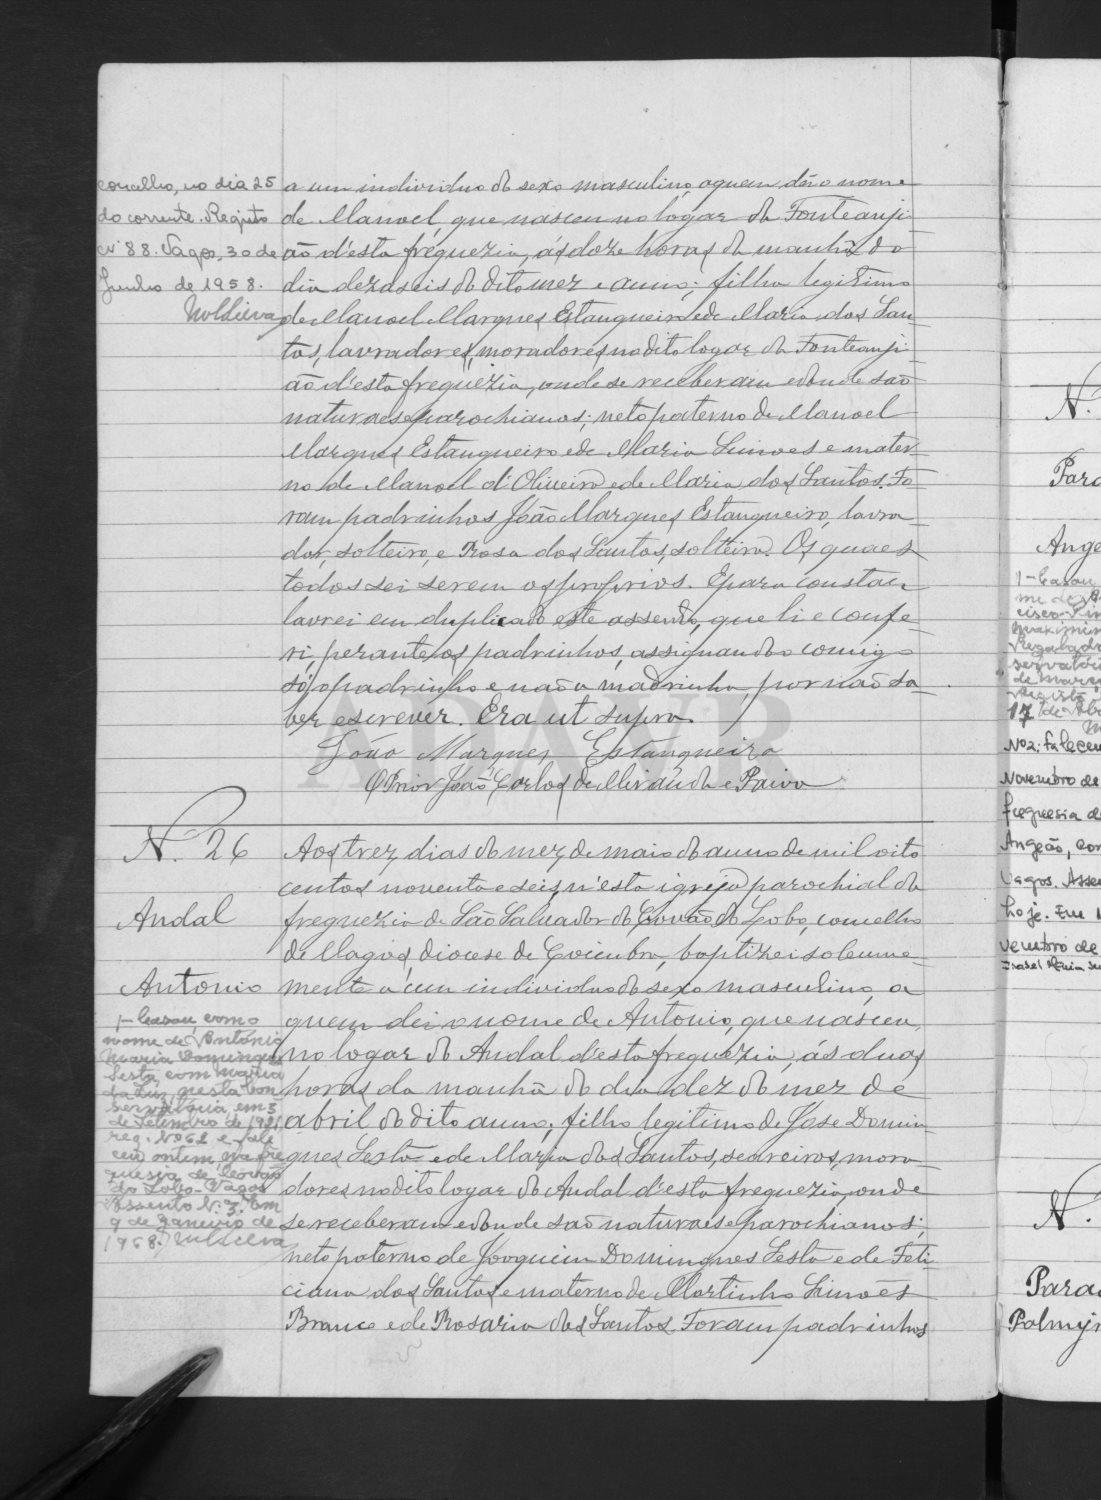 concelho, no dia 25
do corrente. Registo
nº 88. Vagos, 30 de
Junho de 1958.
a um individuo do sexo masculino, a quem dei o nome
de Manoel, que nasceu no logar da Fonteanji-
ão d'esta freguezia, ás doze horas da manhã do
dia dezaseis do dito mez e anno; filho legitimo
de Manoel Marques Estanqueiro e de Maria dos San-
tos, lavradores, moradores no dito logar da Fonteanji-
ão d'esta freguezia, onde se receberam e donde são
naturaes e parochianos; neto paterno de Manoel
Marques Estanqueiro e de Maria Simoes e mater-
no de Manoel d'Oliveira e de Maria dos Santos. Fo-
ram padrinhos João Marques Estanqueiro, lavra-
dor, solteiro, e Rosa dos Santos, solteira. Os quaes
todos sei serem os proprios. E para constar
lavrei em duplicado este assento, que li e confe-
ri, perante os padrinhos, assignando comigo
só o padrinho e não a madrinha, por não sa-
ber escrever. Era ut supra.
João Marques Estanqueiro
O Prior João Carlos de Miranda e Paiva
N. 26
Andal
Antonio
1- Casou, com o
nome de António
Maria Domingues
Sesta, com Maria
da Luz, nesta Con
servatória, em 3
de Setembro de 1921
reg. Nº 62 e fale
ceu ontem, na fre
guesia de Covão
do Lobo-Vagos
Assento N. 3. Em
9 de Janeiro de
1968.
Aos trez dias do mez de maio do anno de mil oito
centos noventa e seis, n'esta igreja parochial da
freguezia de São Salvador do Covão do Lobo, concelho
de Vagos, diocese de Coimbra, baptizei solemne-
mente a um individuo do sexo masculino, a
quem dei o nome de Antonio, que nasceu,
no logar do Andal d'esta freguezia, ás duas
horas da manhã do dia dez do mez de
abril do dito anno; filho legitimo de Jose Domin-
gues Sesta e de Maria dos Santos, seareiros, mora-
dores no dito logar do Andal d'esta freguezia, onde
se receberam e donde são naturaes e parochianos;
neto paterno de Joaquim Domingues Sesta e de Feli-
ciana dos Santos e materno de Martinho Simões
Branco e de Rosaria dos Santos. Foram padrinhos
N.
Para
Ange
1-Casou
17 de
Nº2: faleceu
Novembro de
freguesia d
Angeão, con
Vagos. Asse
hoje. Em 1
vembro de
N.
Para
Palmyr
ADAVR